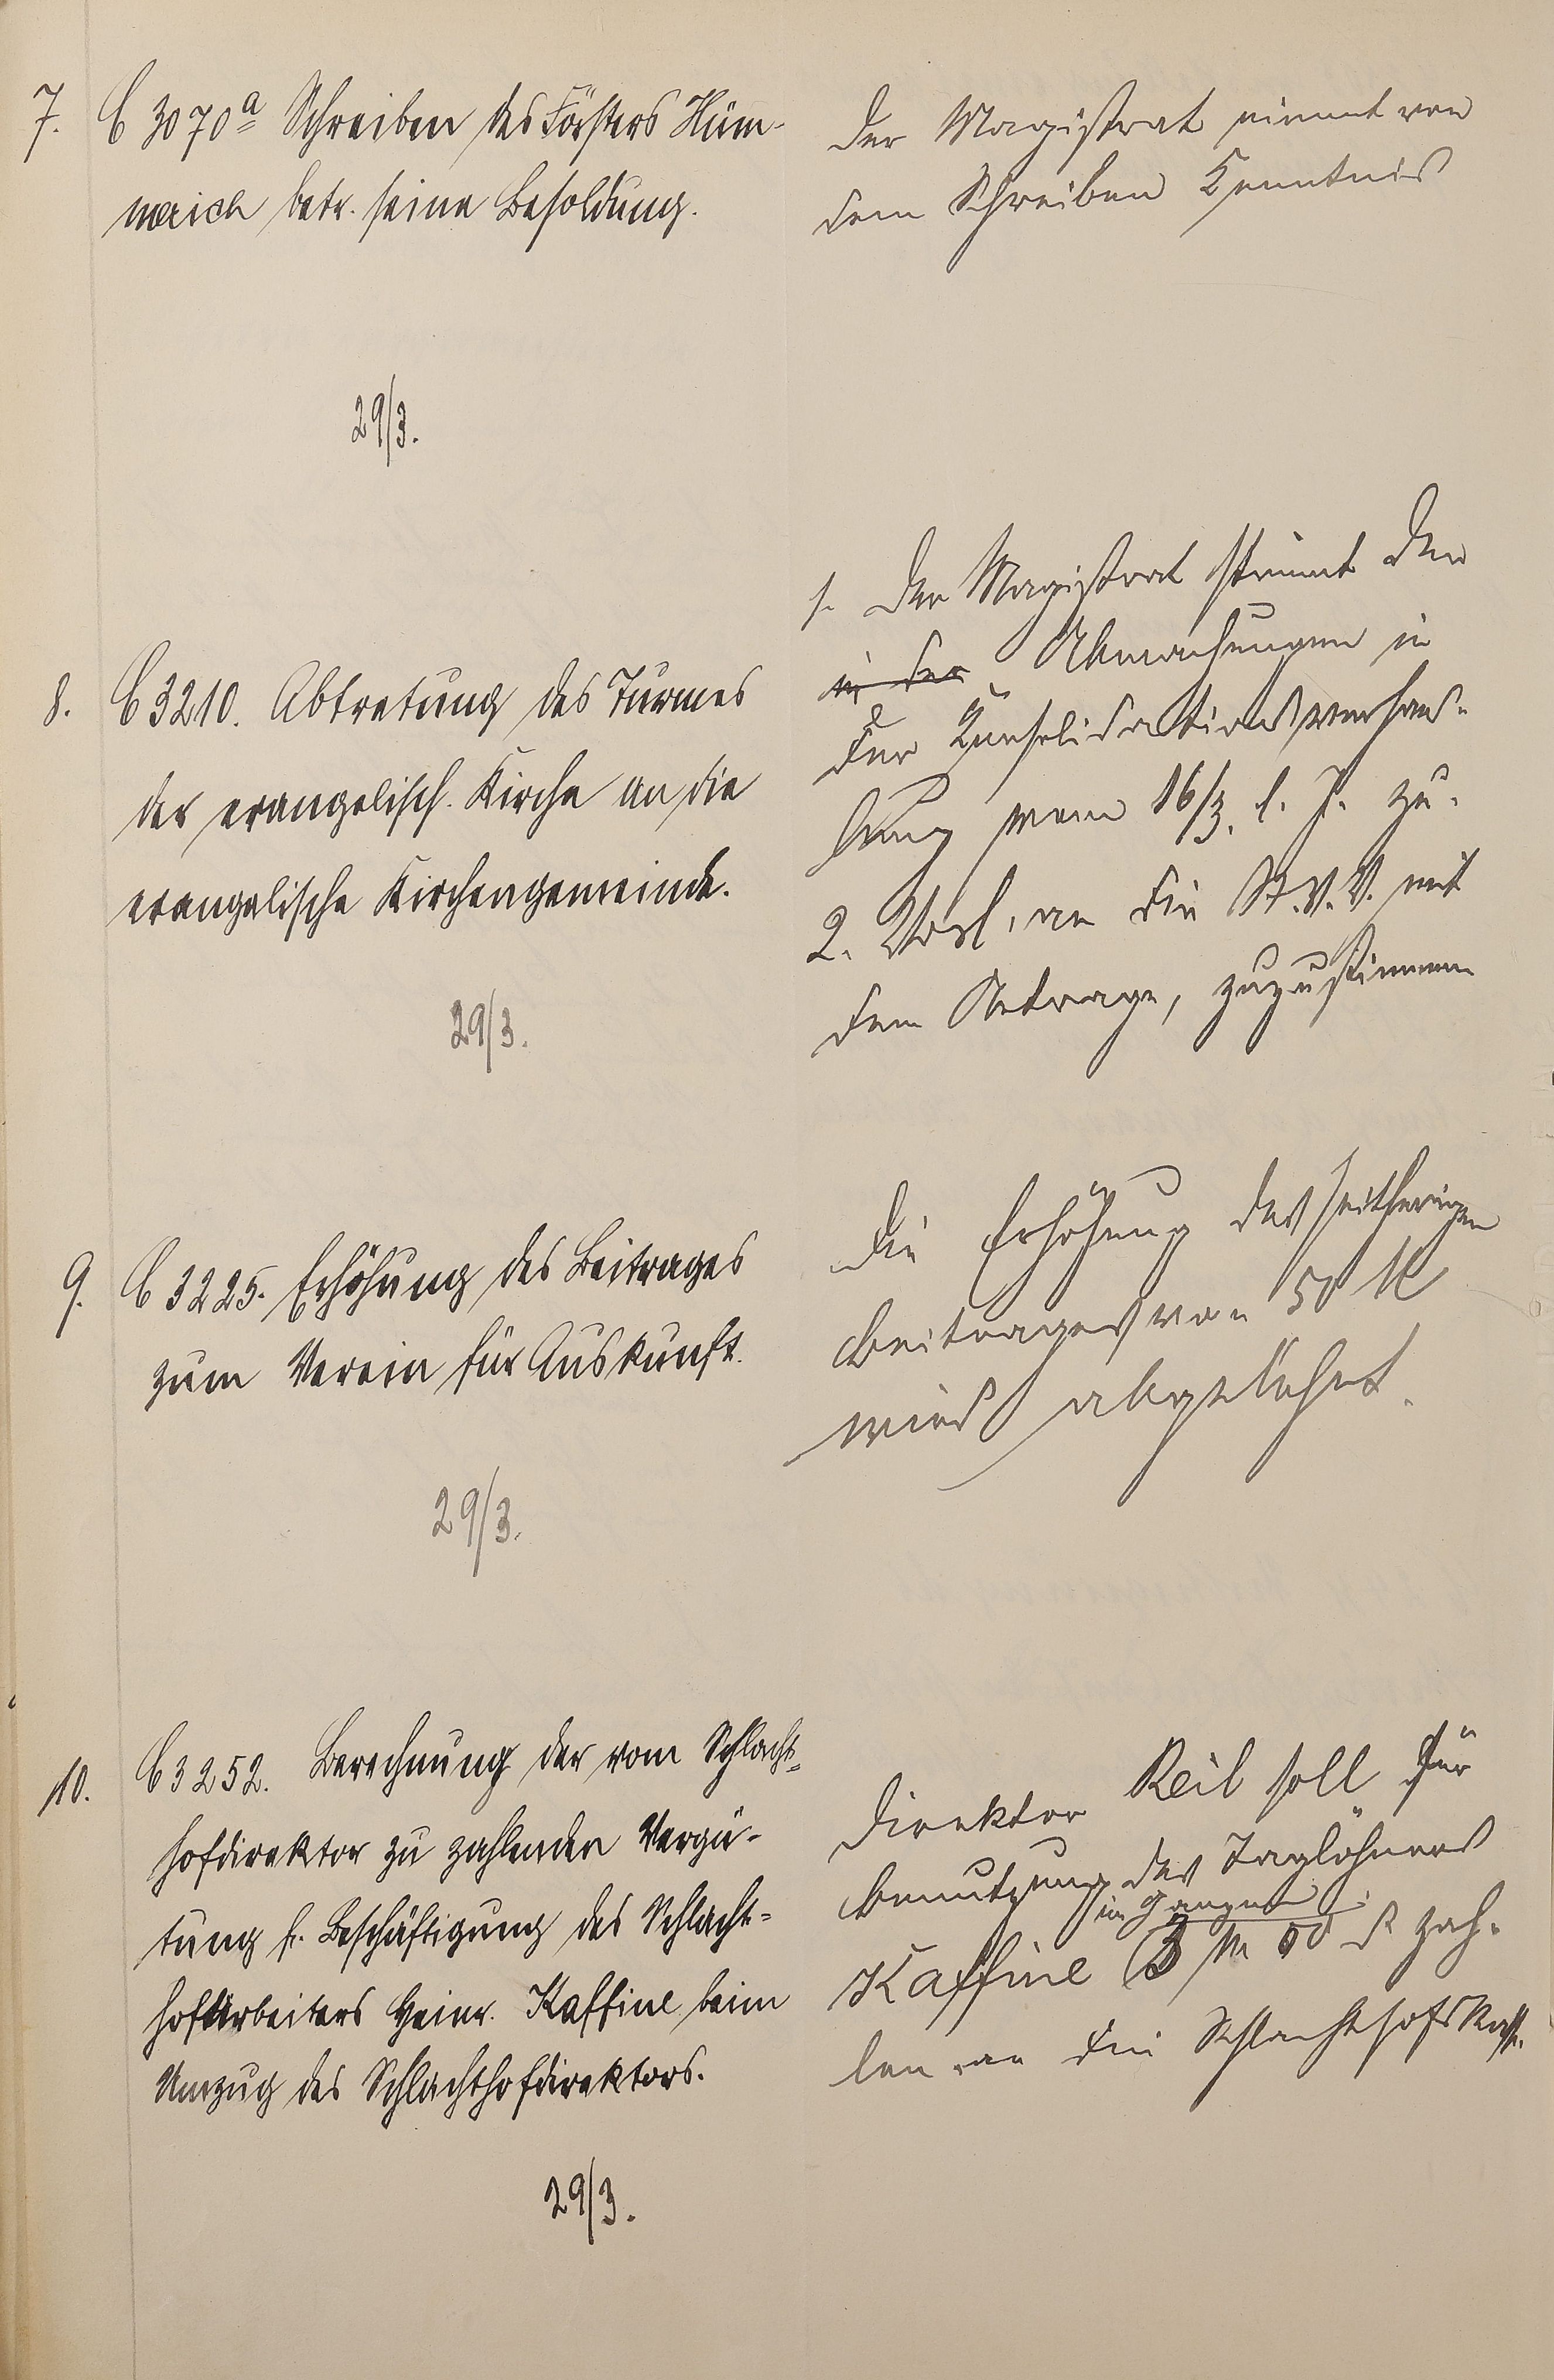 7. C 3070a Schreiben des Försters Hüm-
merich betr. seine Besoldung.
Der Magistrat nimmt von
dem Schreiben Kenntnis
29/3.
8. C 3210. Abtretung des Turmes
der evangelisch. Kirche an die
evangelische Kirchengemeinde.
29/3.
1. Der Magistrat stimmt den
in der Abmachungen in
der Konsolidationsverhand-
lung vom 16/3. l. J. zu.
2. Vorl. an die St.V.V. mit
dem Antrage, zuzustimmen
9. C 3225. Erhöhung des Beitrages
zum Verein für Auskunft.
29/3.
Die Erhöhung des seitherigen
Beitrages von 50 M
wird abgelehnt.
10. C 3252. Berechnung der vom Schlacht-
hofdirektor zu zahlenden Vergü-
tung f. Beschäftigung des Schlacht-
hofarbeiters Heinr. Kaffine beim
Umzug des Schlachthofdirektors.
29/3.
Direktor Reil soll für
Benutzung des Taglöhners
im Ganzen
Kaffine 3 M 00 ₰ zah-
len an die Schlachthofskasse.